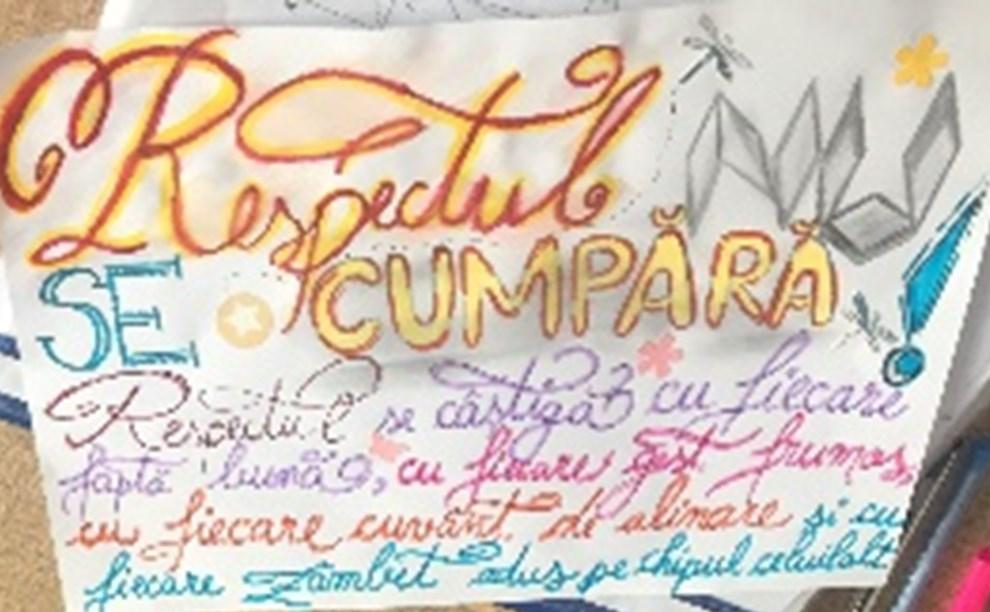 Respectul NU
SE CUMPĂRĂ!
Respectul se câștigă cu fiecare
faptă bună, cu fiecare gest frumos,
cu fiecare cuvânt de alinare și cu
fiecare zâmbet adus pe chipul celuilalt